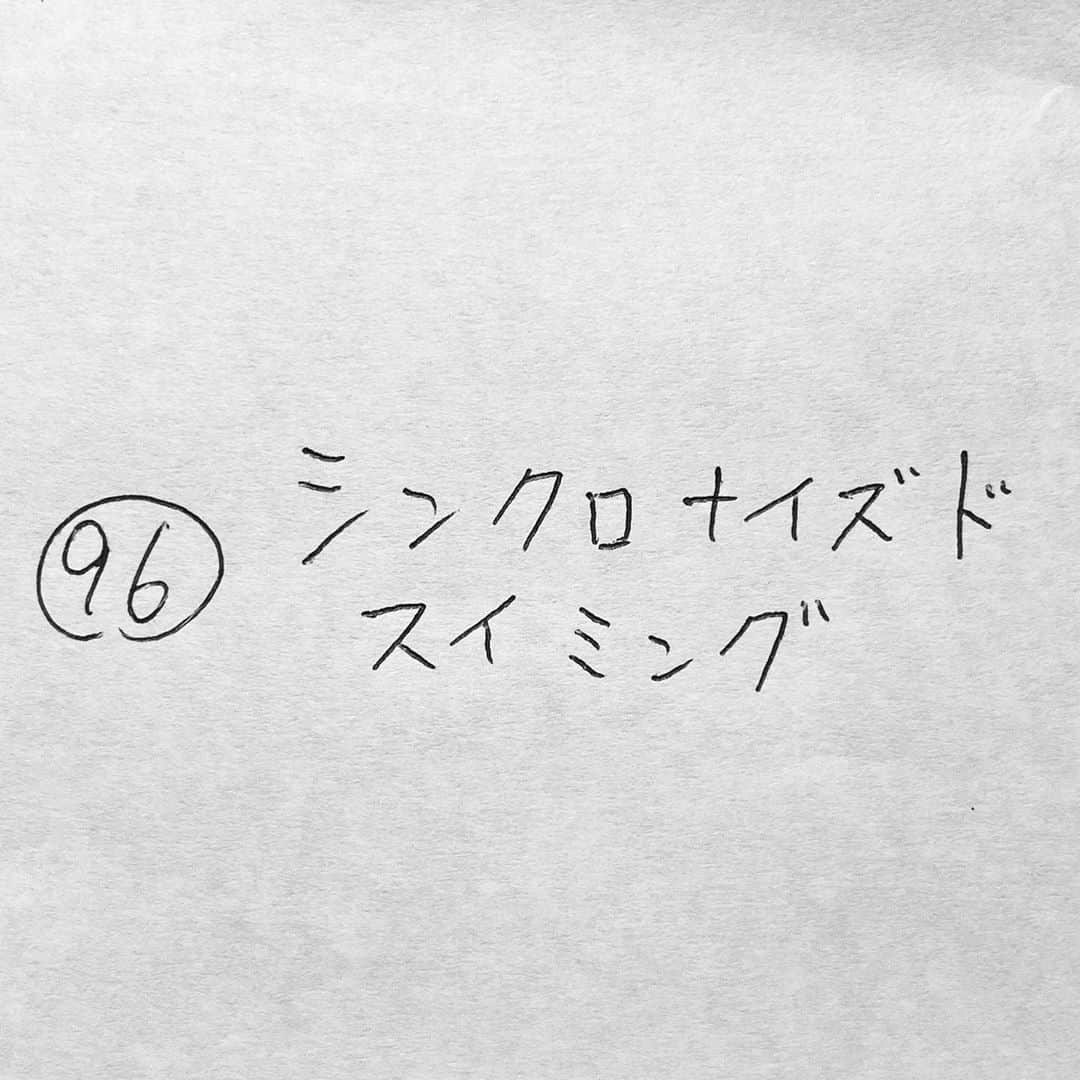 ㊾96 シンクロナイズド
スイミング